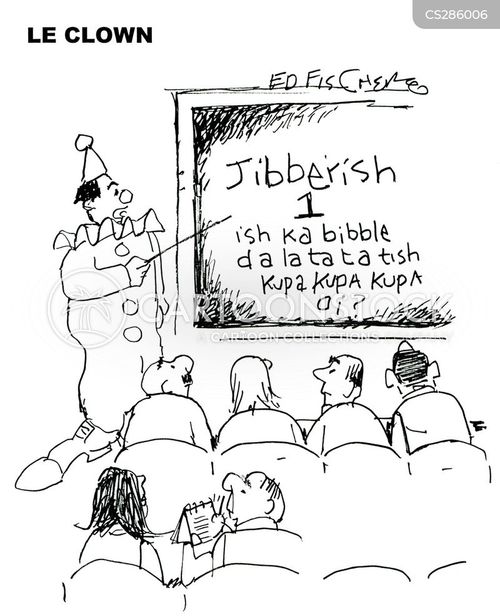 CS286006
LE CLOWN
ED FISCHER
Jibberish
1
ish ka bibble
da la ta ta tish
kupa kupa kupa
a?
CARTOONSTOCK
CARTOON COLLECTIONS